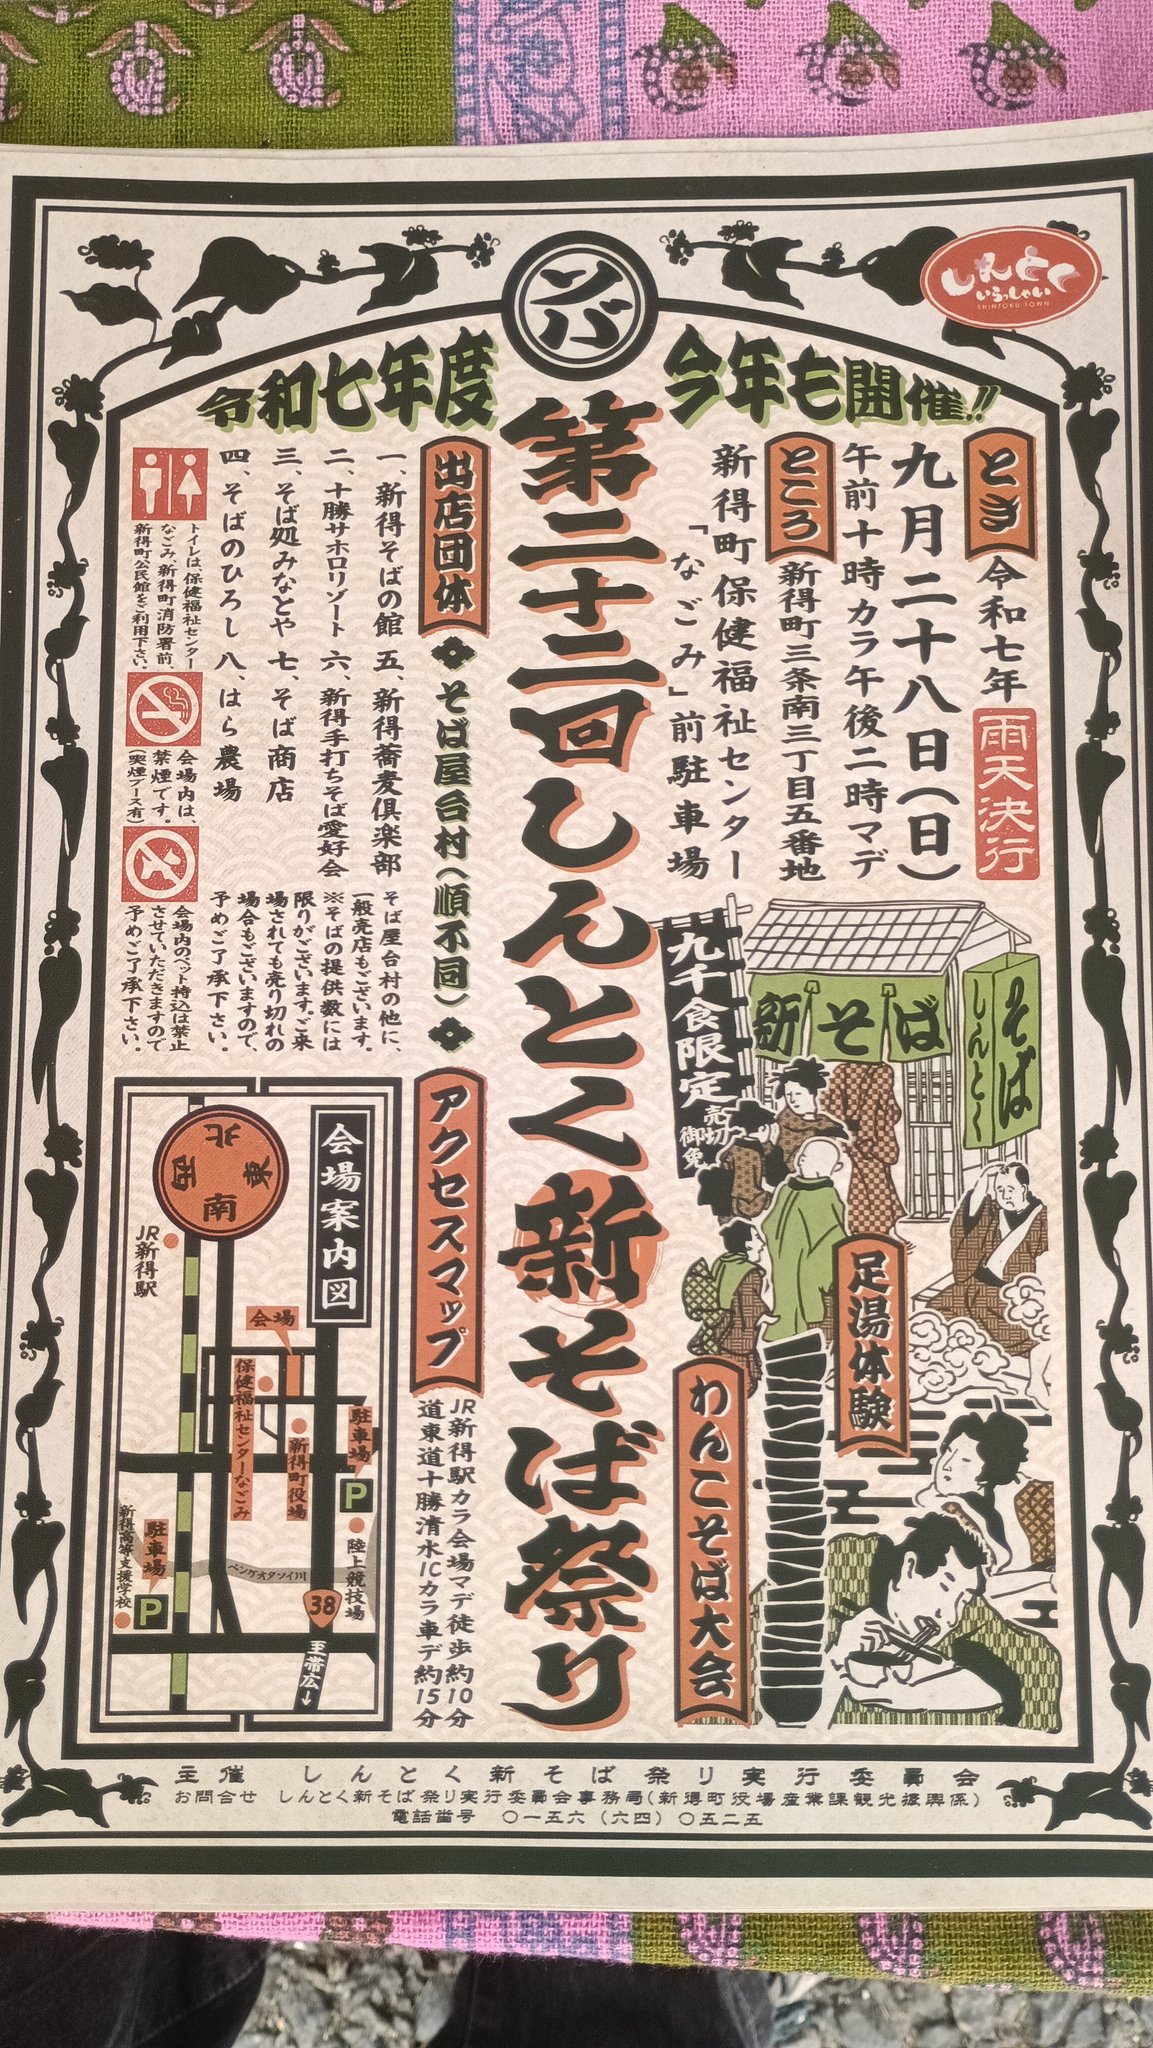 ソバ
しんとく
いらっしゃい
SHINTOKU TOWN
今年も開催!!
令和七年度
とき
令和七年
雨天決行
九月二十八日(日)
午前十時カラ午後二時マデ
ところ
新得町三条南三丁目五番地
新得町保健福祉センター
「なごみ」前駐車場
第二十二回しんとく新そば祭り
出店団体
そば屋台村(順不同)
一、新得そばの館
二、十勝サホロリゾート
三、そば処みなとや
四、そばのひろし
五、新得蕎麦倶楽部
六、新得手打ちそば愛好会
七、そば商店
八、はら農場
そば屋台村の他に、
一般売店もございます。
※そばの提供数には
限りがございます。ご来
場されても売り切れの
場合もございますので、
予めご了承下さい。
トイレは、保健福祉センター
なごみ、新得町消防署前、
新得町公民館をご利用下さい。
会場内は、
禁煙です。
(喫煙ブース有)
会場内のペット持込は禁止
させていただきますので
予めご了承下さい。
九千食限定
売切
御免
新そば
そば
しんとく
足湯体験
わんこそば大会
アクセスマップ
JR新得駅カラ会場マデ徒歩約10分
道東道十勝清水ICカラ車デ約15分
会場案内図
北
東
西
南
JR新得駅
会場
保健福祉センターなごみ
新得町役場
駐車場
P
陸上競技場
ペンケオタソイ川
新得高等支援学校
駐車場
P
38
至帯広↓
主催 しんとく新そば祭り実行委員会
お問合せ しんとく新そば祭り実行委員会事務局(新得町役場産業課観光振興係)
電話番号 〇一五六(六四)〇五二五